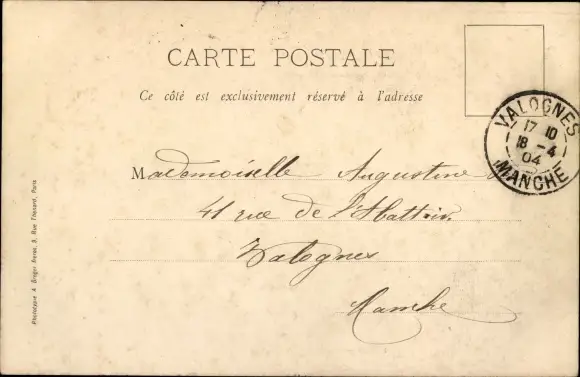 CARTE POSTALE
Ce côté est exclusivement réservé à l'adresse
VALOGNES
17 10
18 - 4
04
MANCHE
Mademoiselle Augustine
41 rue de l'Abattoir
Valognes
Manche
Phototypie A. Breger frères, 9, Rue Thénard, Paris